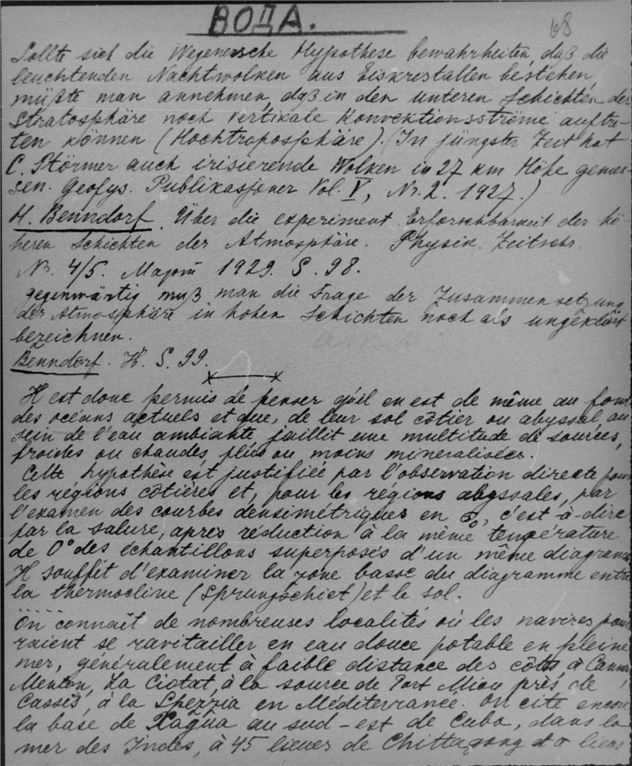 ВОДА.
68
Sollte sich die Wegenersche Hypothese bewahrheiten, daß die
leuchtenden Nachtwolken aus Eiskrestallen bestehen,
müßte man annehmen, daß in den unteren Schichten der
Stratosphäre noch vertikale Konvektionsströme auftre-
ten können (Hochtroposphäre). (In jüngster Zeit hat
C. Störmer auch irisierende Wolken in 27 km Höhe gemes-
sen. Geofys. Publikasjoner Vol. V, Nr. 2. 1927.)
H. Benndorf. Über die experiment. Erforschbarkeit der hö-
heren Schichten der Atmosphäre. Physik. Zeitschr.
Nr. 4/5. 1929. S. 98.
gegenwärtig muß man die Frage der Zusammensetzung
der Atmosphäre in hohen Schichten noch als ungeklärt
bezeichnen.
Benndorf. H. S. 99.
Il est donc permis de penser qu'il en est de même au fond
des océans actuels et que, de leur sol côtier ou abyssal au
sein de l'eau ambiante jaillit une multitude de sources,
froides ou chaudes, plus ou moins mineralisées.
Cette hypothèse est justifiée par l'observation directe pour
les régions côtières et, pour les régions abyssales, par
l'examen des courbes densimétriques en c'est-à-dire
par la salure, après réduction à la même température
de 0° des échantillons superposés d'un même diagramme
Il souffit d'examiner la zone basse du diagramme entre
la thermocline (Sprungschiet) et le sol.
On connaît de nombreuses localités où les navires pour
raient se ravitailler en eau douce potable en pleine
mer, généralement à faible distance des côtes à Cannes
Menton, La Ciotat, à la source de Port Miou près de
Cassis, à la Spezzia en Méditerrance. On cite encore
la base de Xagua au sud-est de Cuba, dans la
mer des Indes, à 45 lieues de Chittagong et à lieus